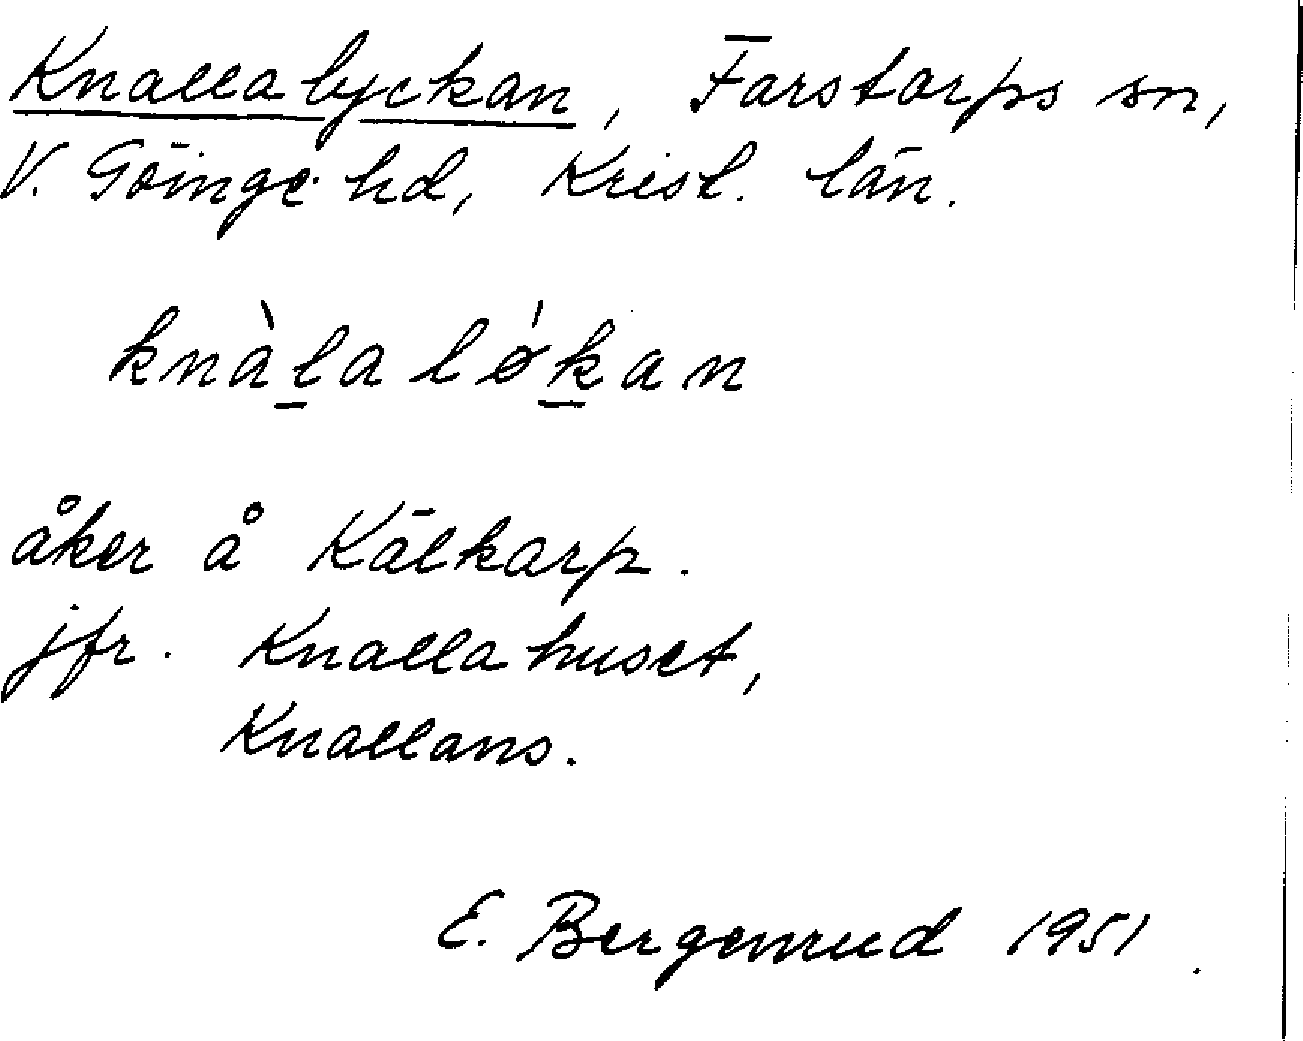 Knallalyckan, Farstorps sn,
V. Göinge hd, Krist. län.
knàlaløkan
åker å Kälkarp.
jfr. Knallahuset,
Knallans.
E. Bergenrud 1951.